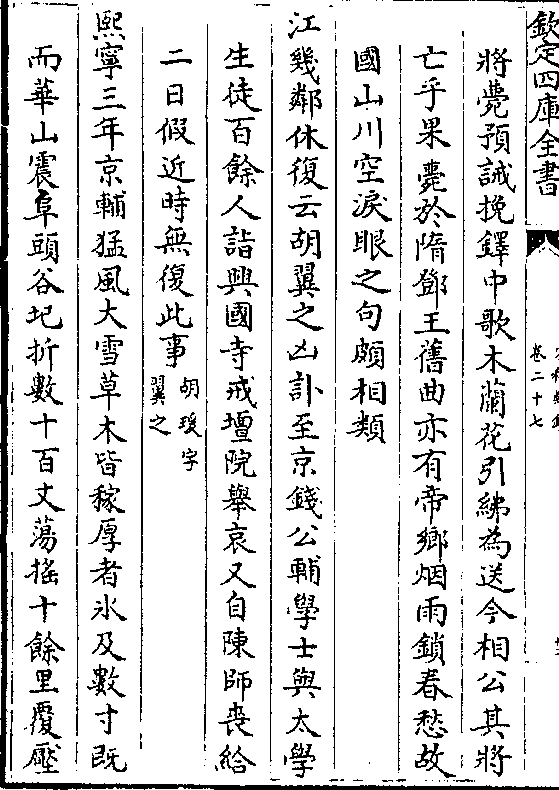 欽定四庫全書
卷二十七
將薨預誡挽鐸中歌木蘭花引紼為送今相公其將
亡乎果薨於隋鄧王舊曲亦有帝鄉烟雨鎖春愁故
國山川空淚眼之句頗相類
江幾鄰休復云胡翼之凶訃至京錢公輔學士與太學
生徒百餘人詣興國寺戒壇院舉哀又自陳師喪給
二日假近時無復此事胡瑗字翼之
熙寧三年京輔猛風大雪草木皆稼厚者氷及數寸既
而華山震阜頭谷圯折數十百丈蕩搖十餘里覆壓